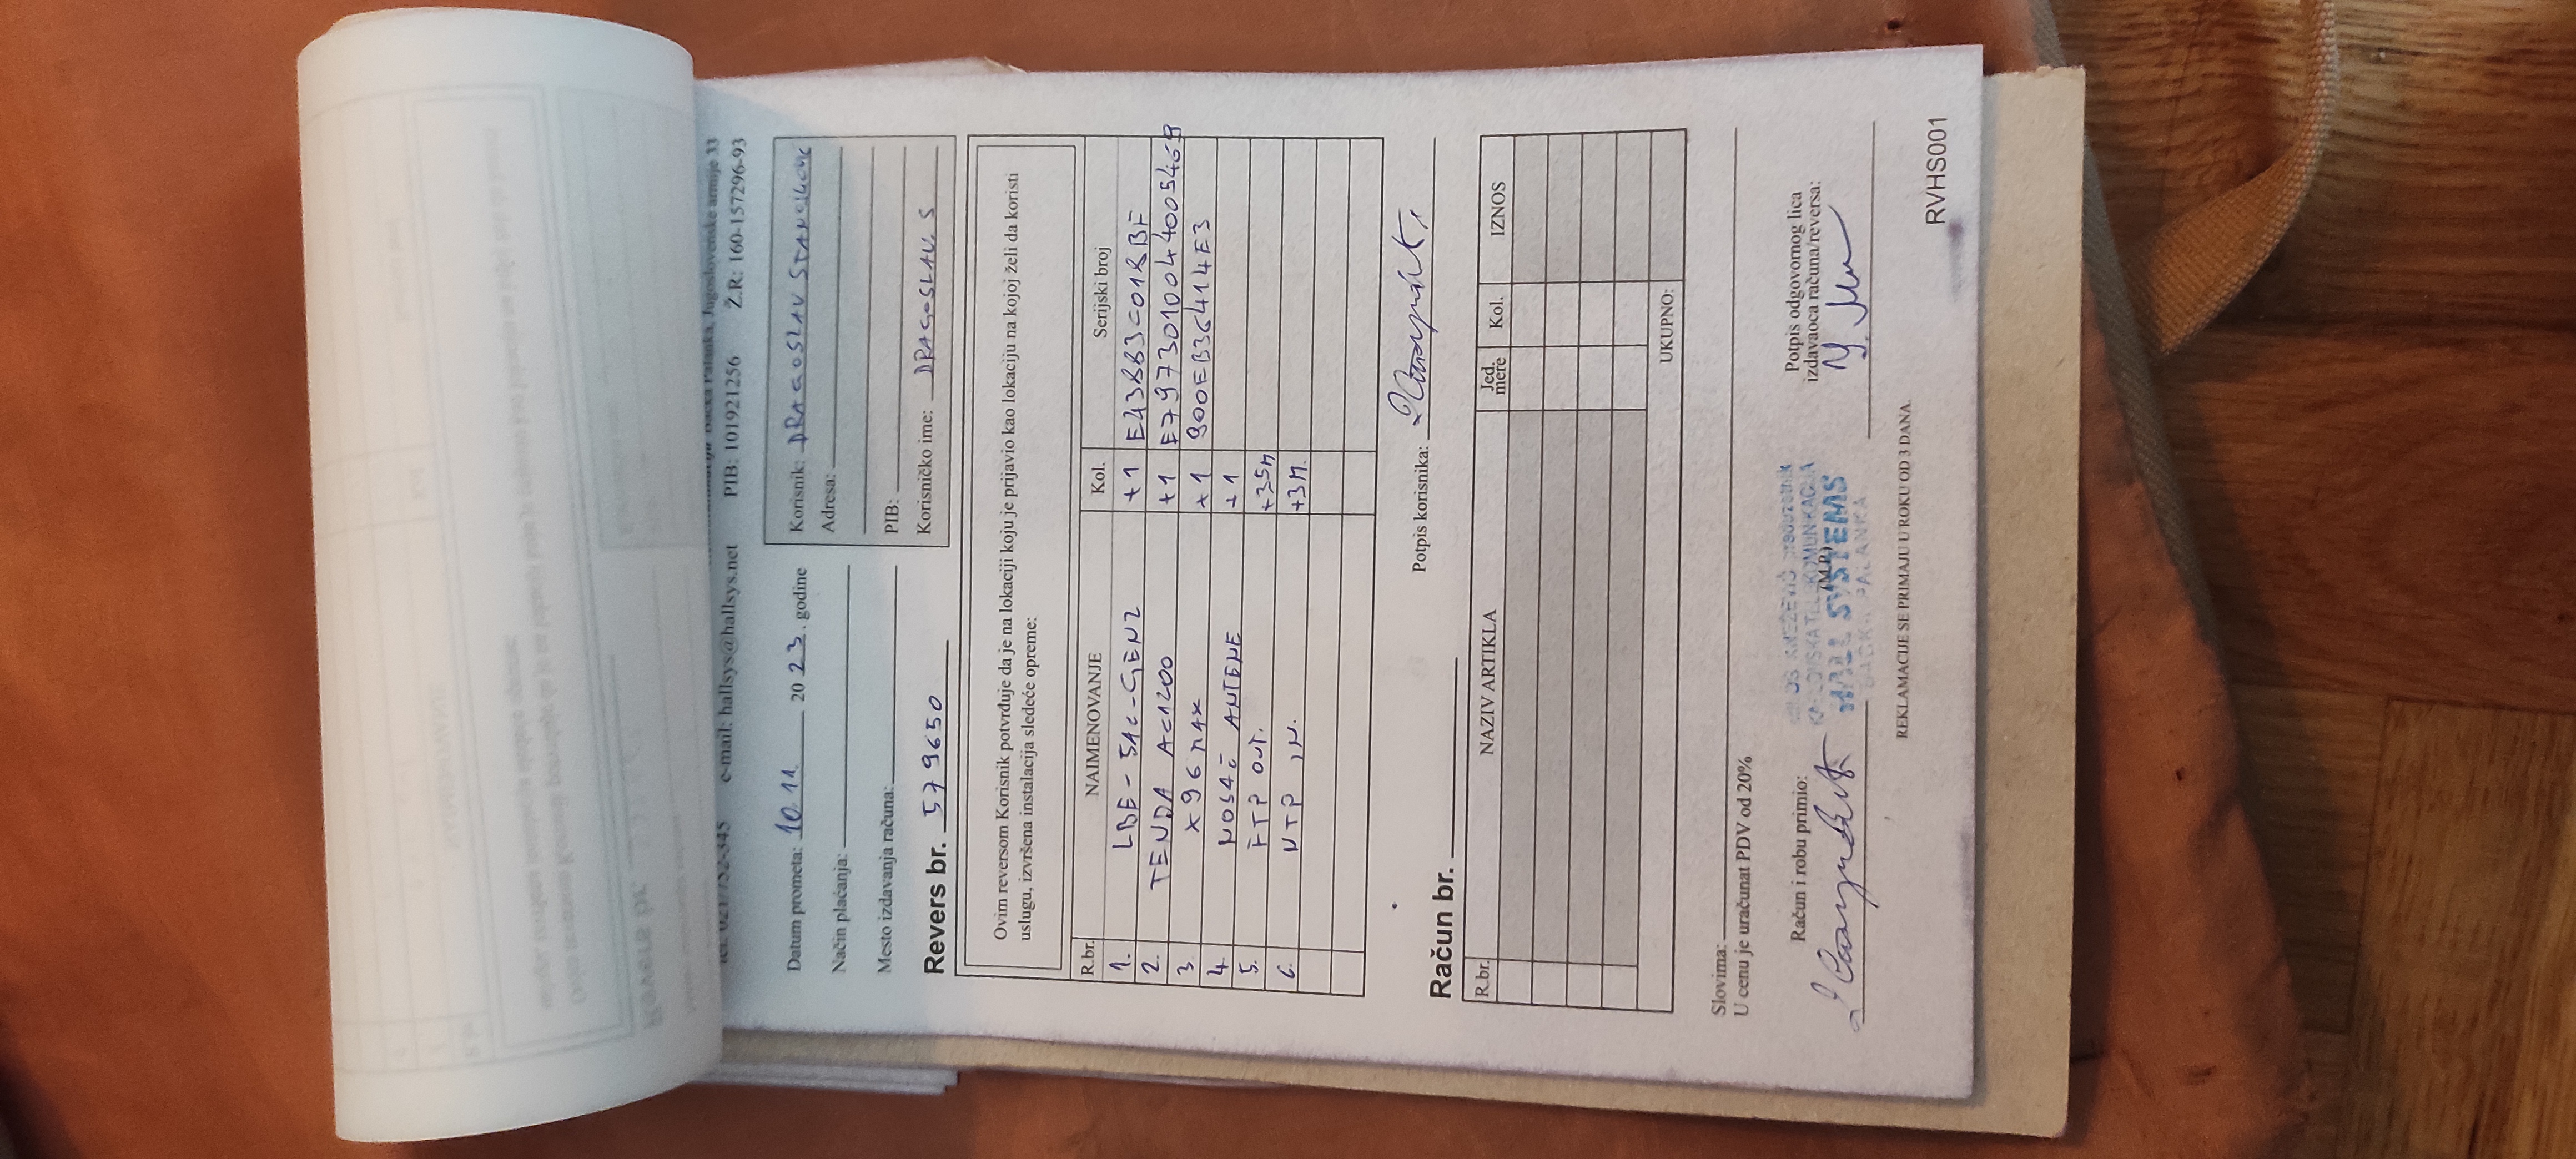 Jugoslovenske armije 33
e-mail: hallsys@hallsys.net PIB: 101921256 Ž.R: 160-157296-93
Datum prometa: 10.11. 2023. godine
Način plaćanja:
Mesto izdavanja računa:
Korisnik: DRAGOSLAV STANOJKOVIĆ
Adresa:
PIB:
Korisničko ime: DRAGOSLAV.S
Revers br. 579650
Ovim reversom Korisnik potvrđuje da je na lokaciji koju je prijavio kao lokaciju na kojoj želi da koristi
uslugu, izvršena instalacija sledeće opreme:
R.br. NAIMENOVANJE Kol. Serijski broj
1. LBE-5AC-GEN2 +1 E43883C01RBF
2. TENDA AC1200 +1 E7973010044005469
3. X96 MAX +1 900EB36414E3
4. NOSAČ ANTENE +1
5. FTP OUT. +25M
6. NTP IN. +3M.
Potpis korisnika:
Račun br.
R.br. NAZIV ARTIKLA Jed. mere Kol. IZNOS
UKUPNO:
Slovima:
U cenu je uračunat PDV od 20%
Račun i robu primio:
(M.P.)
SYSTEMS
PALANKA
Potpis odgovornog lica
izdavaoca računa/reversa:
REKLAMACIJE SE PRIMAJU U ROKU OD 3 DANA.
RVHS001